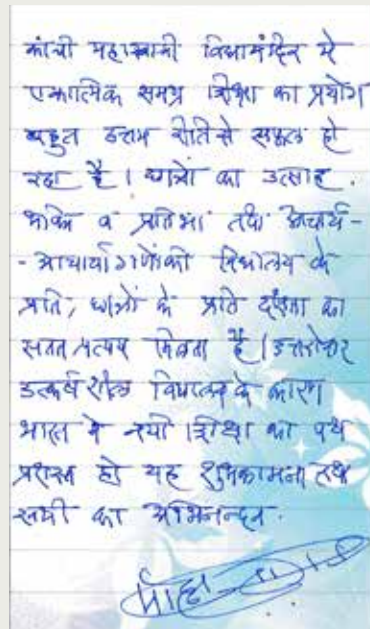 कांची महास्वामी विद्यामंदिर मे
एकात्मिक समग्र शिक्षा का प्रयोग
बहुत उत्तम रीति से सफल हो
रहा है। छात्रों का उत्साह,
भक्ति व प्रतिभा तथा आचार्य-
- आचार्यागणोंकी विद्यालय के
प्रति, छात्रों के प्रति दक्षता का
सतत प्रत्यय मिलता है। उत्तरोत्तर
उत्कर्षशील विद्यालय के कारण
भारत मे नयी शिक्षा का पथ
प्रशस्त हो यह शुभकामना तथा
सभी का अभिनन्दन.